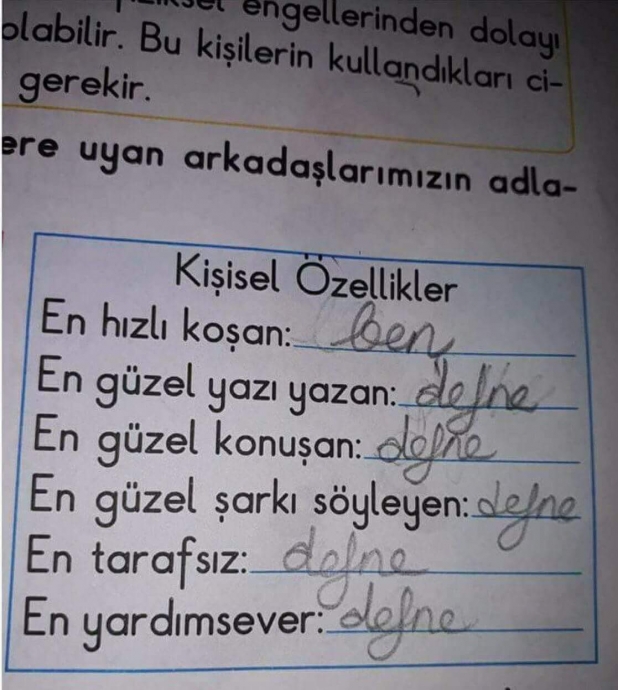 engellerinden dolayı
olabilir. Bu kişilerin kullandıkları ci-
gerekir.
ere uyan arkadaşlarımızın adla-
Kişisel Özellikler
En hızlı koşan: ben
En güzel yazı yazan: defne
En güzel konuşan: defne
En güzel şarkı söyleyen: defne
En tarafsız: defne
En yardımsever: defne